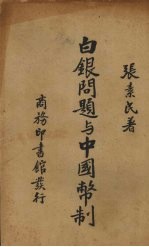 張素民著
白銀問題与中國幣制
商務印書館發行